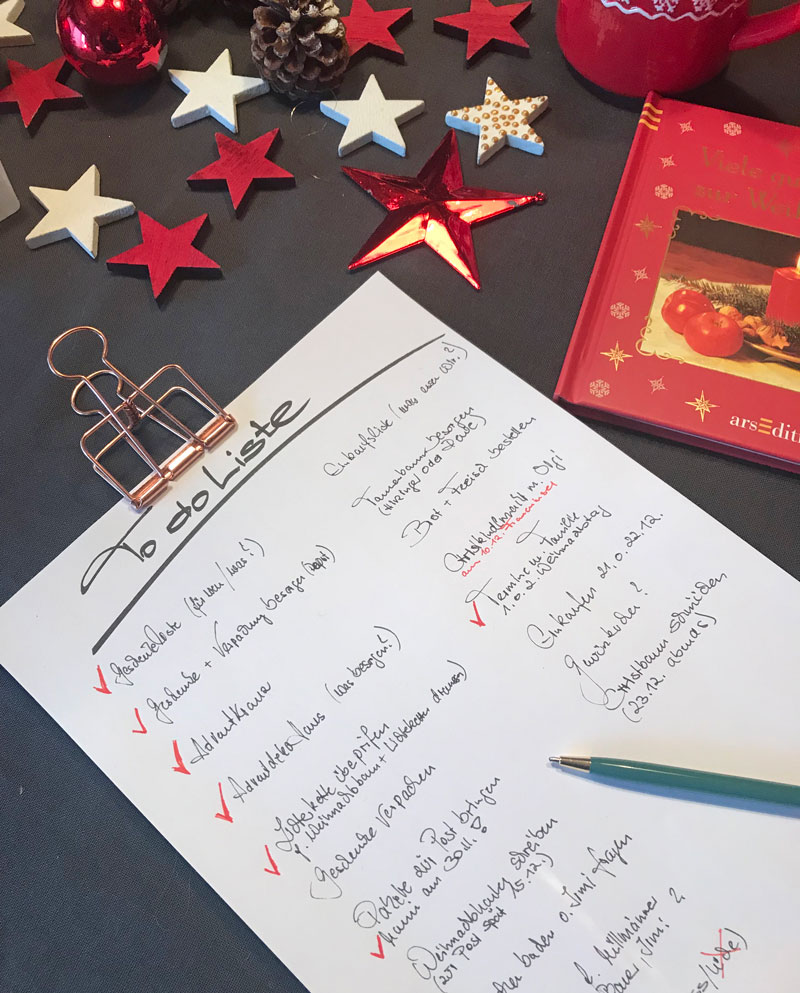 To do Liste
Geschenkeliste (für wen/was?)
Geschenke + Verpackung besorgen
Adventkranz
Adventdeko Haus (was besorgen?)
Lichterkette überprüfen
f. Weihnachtsbaum + Lichterketten draussen
Geschenke verpacken
Pakete zur Post bringen
Mann am 30.11.!
Weihnachtskarten schreiben
(zur Post spät. 15.12.)
baden o. Jimi fragen
f. Müllmänner
Bauer, Jimi ?
Einkaufsliste (was
Tannenbaum besorgen
oder
Brot + Fleisch bestellen
Christkindlmarkt m. Olgi
am 10.12.
Termine m. Familie
1. o. 2. Weihnachtstag
Einkaufen 21. o. 22.12.
?
Christbaum schmücken
(23.12. abends)
Viele
zur
arsEditi